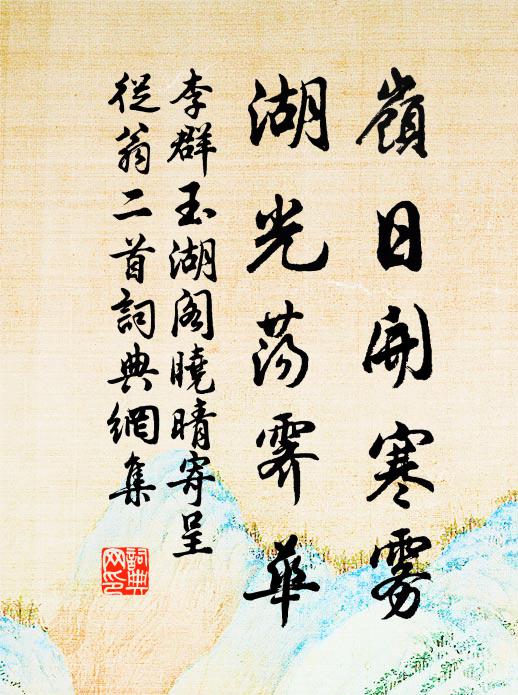 嶺日開寒霧
湖光蕩霽華
李群玉湖阁曉晴寄呈
從翁二首詞典網集
詞典
网印